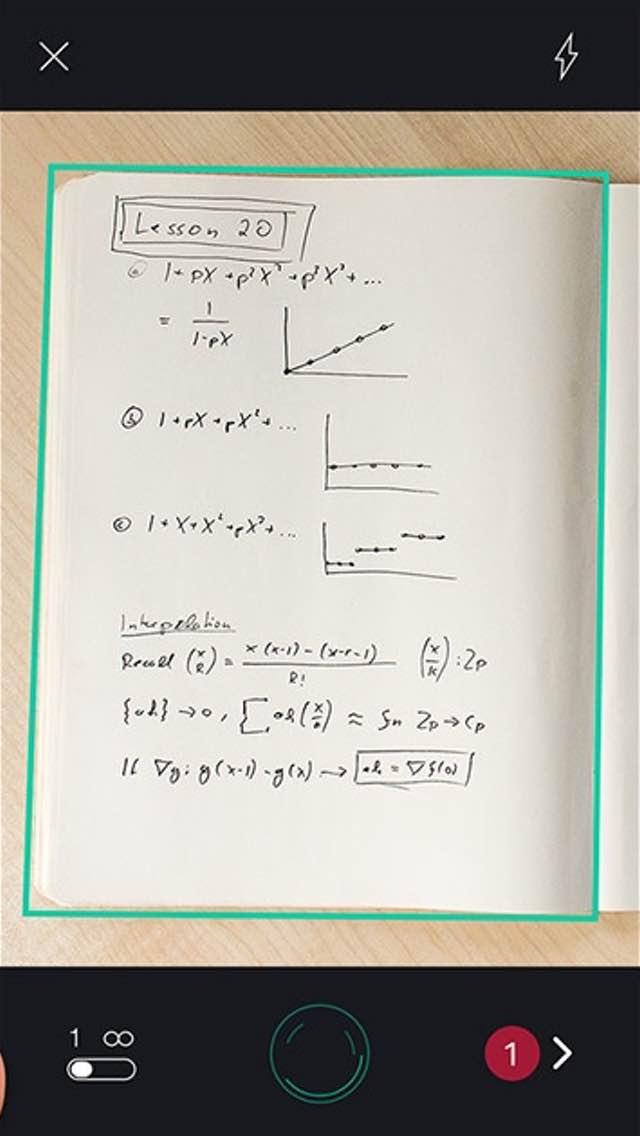 Lesson 20
ⓐ 1 + pX + p²X² + p³X³ + ...
= 1/(1-pX)
ⓑ 1 + pX + pX² + ...
ⓒ 1 + X + X² + pX³ + ...
Interpolation
Recall (x k) = x(x-1) - (x-r-1) / k! (x/k) : Zp
{ak} → 0, Σ ak(x/k) ≈ fn Zp → Cp
If ∇g: g(x-1) - g(x) → ak = ∇f(0)
1 ∞
1